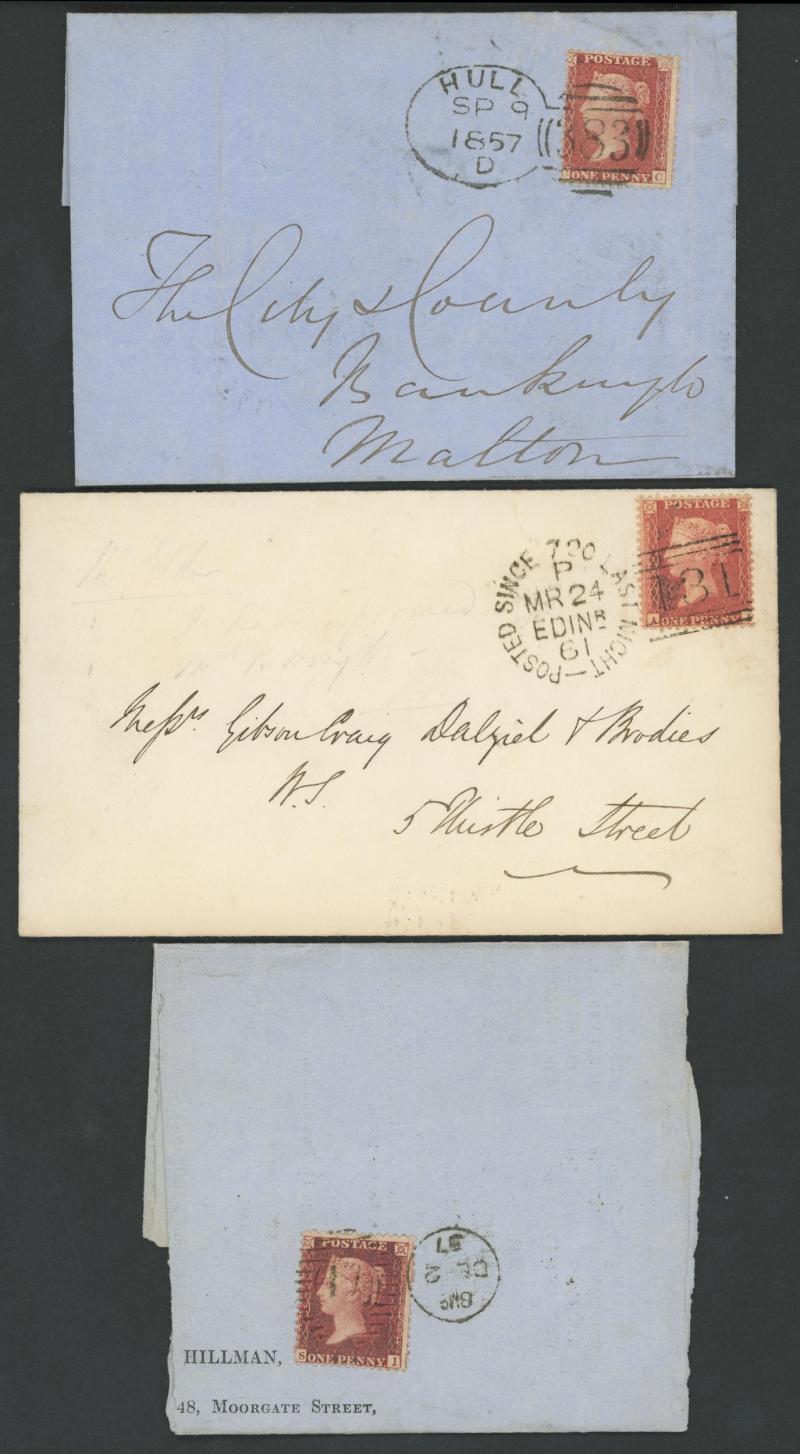 HULL
SP 9
1857
D
383
POSTAGE
ONE PENNY C
The City & County
Banking Co
Malton
POSTED SINCE 7 30 LAST NIGHT
P
MR 24
EDINR
61
POSTAGE
131
A ONE PENNY
Messrs Gibson Craig Dalziel & Brodies
W.S.
5 Thistle Street
POSTAGE
S ONE PENNY I
57
HILLMAN,
48, MOORGATE STREET,